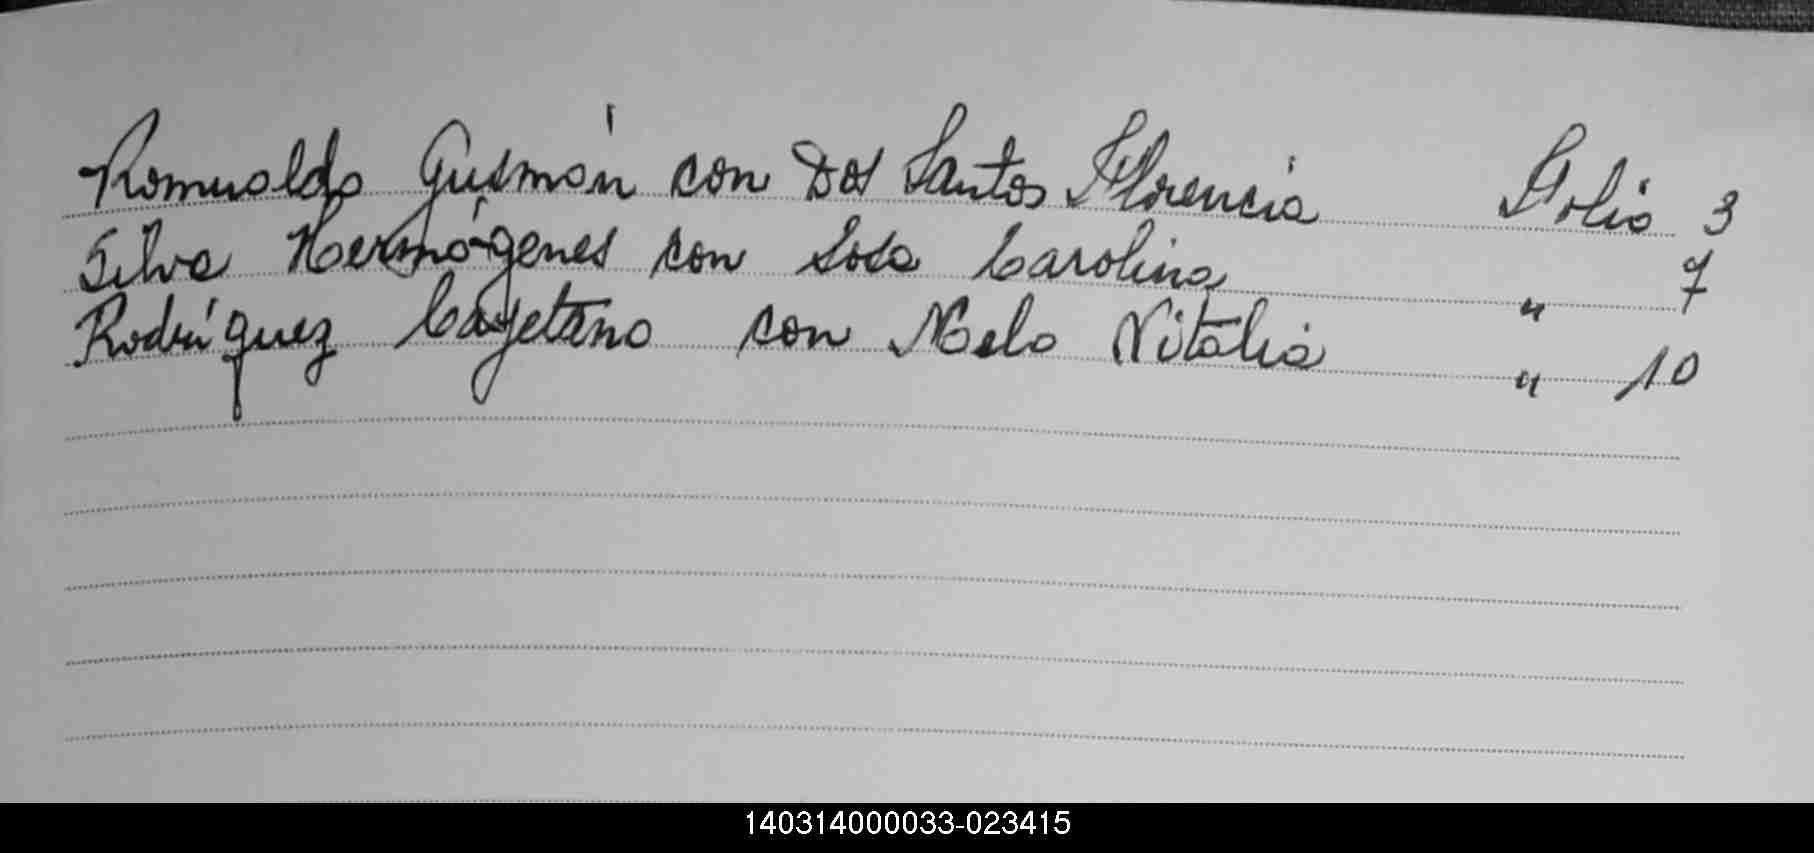 Romualdo Gusmán con Dos Santos Florencia Folio 3
Silva Hermógenes con Sosa Carolina " 7
Rodríguez Cayetano con Melo Vitalia " 10
140314000033-023415